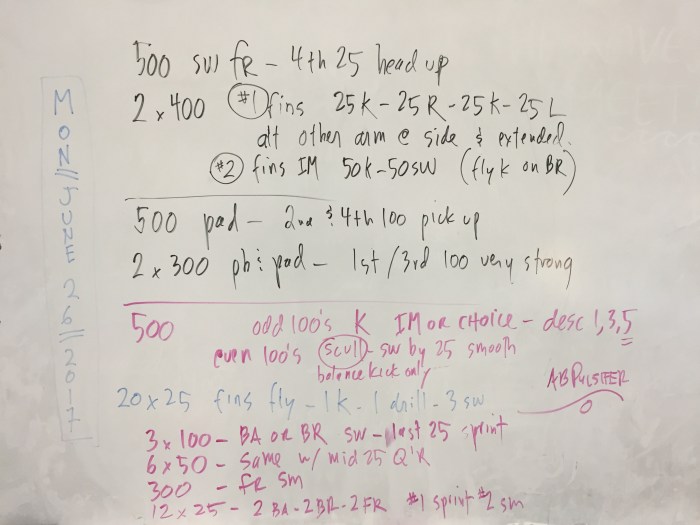 MON//JUNE 26//2017
500 sw fR - 4th 25 head up
2 x 400 #1 fins 25K - 25R - 25K - 25L
alt other arm @ side & extended.
#2 fins IM 50K - 50sw (fly k on BR)
500 pad - 2nd & 4th 100 pick up
2 x 300 pb & pad - 1st / 3rd 100 very strong
500 odd 100's K IM OR CHOICE - desc 1,3,5
even 100's scull - sw by 25 smooth
balance kick only
ABPULSIFER
20 x 25 fins fly - 1k - 1 drill - 3 sw
3 x 100 - BA OR BR sw - last 25 sprint
6 x 50 - same w/ mid 25 Q'R
300 - fR sm
12 x 25 - 2 BA - 2 BR - 2 FR #1 sprint #2 sm